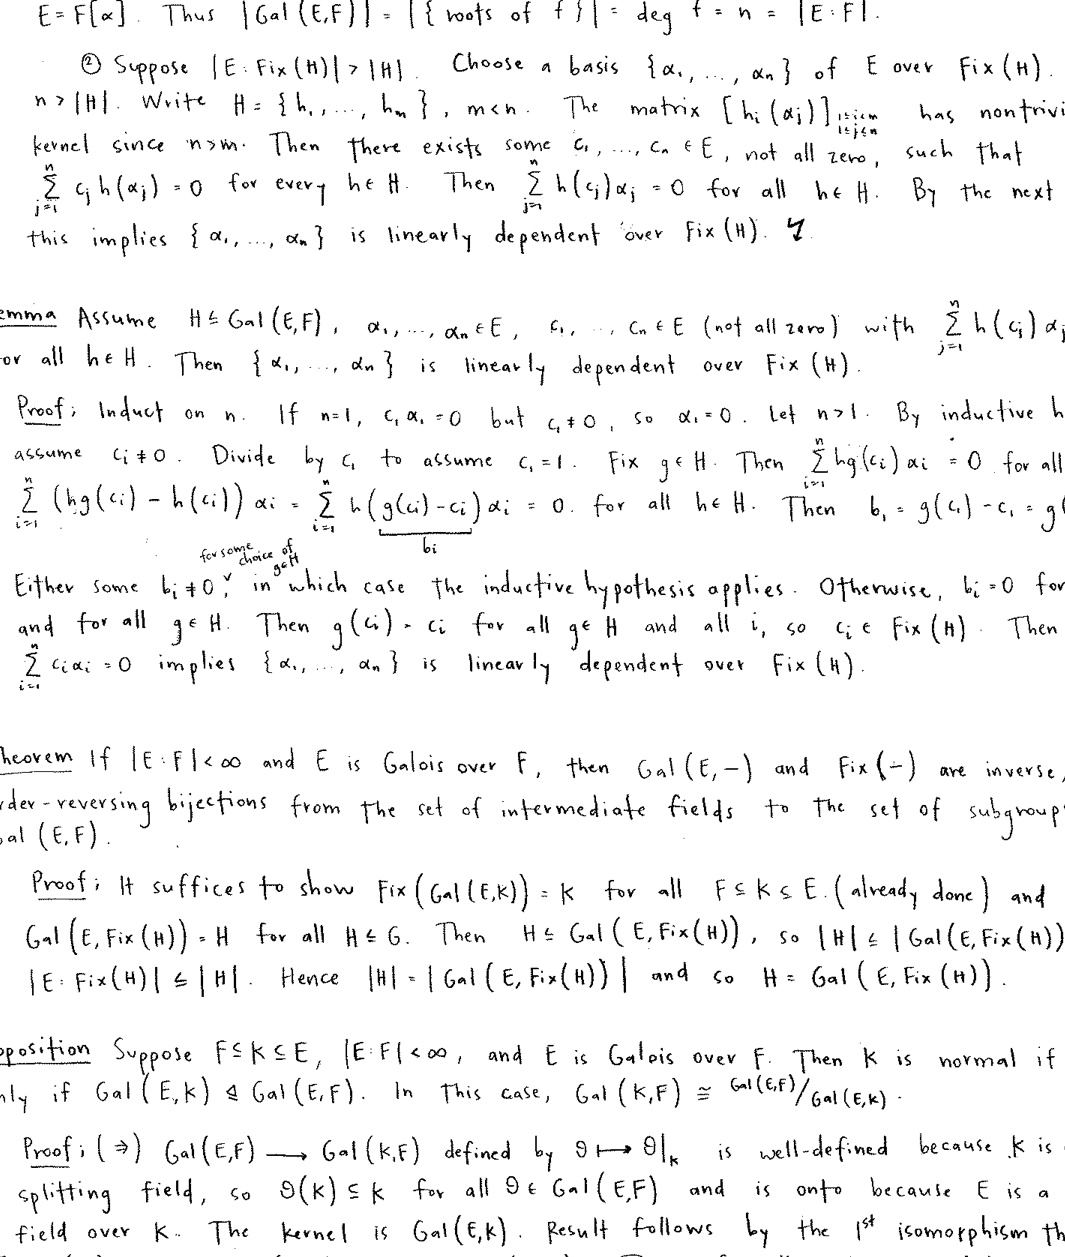 E = F[α]. Thus |Gal(E,F)| = |{roots of f}| = deg f = n = |E:F|.
② Suppose |E:Fix(H)| > |H|. Choose a basis {α₁, ..., αₙ} of E over Fix(H).
n > |H|. Write H = {h₁, ..., hₘ}, m<n. The matrix [hᵢ(αⱼ)] 1≤i≤m 1≤j≤n has nontrivi
kernel since n>m. Then there exists some c₁, ..., cₙ ∈ E, not all zero, such that
∑ⱼ₌₁ⁿ cⱼ h(αⱼ) = 0 for every h∈H. Then ∑ⱼ₌₁ⁿ h(cⱼ)αⱼ = 0 for all h∈H. By the next
this implies {α₁, ..., αₙ} is linearly dependent over Fix(H). ↯
emma Assume H≤Gal(E,F), α₁, ..., αₙ∈E, c₁, ..., cₙ∈E (not all zero) with ∑ⱼ₌₁ⁿ h(cⱼ)αⱼ
or all h∈H. Then {α₁, ..., αₙ} is linearly dependent over Fix(H).
Proof: Induct on n. If n=1, c₁α₁=0 but c₁≠0, so α₁=0. Let n>1. By inductive h
assume cᵢ≠0. Divide by c₁ to assume c₁=1. Fix g∈H. Then ∑ᵢ₌₁ⁿ hg(cᵢ)αᵢ = 0 for all
∑ᵢ₌₁ⁿ (hg(cᵢ) - h(cᵢ))αᵢ = ∑ᵢ₌₁ⁿ h(g(cᵢ)-cᵢ)αᵢ = 0. for all h∈H. Then b₁ = g(c₁)-c₁ = g(
bᵢ
for some choice of g∈H
Either some bᵢ≠0, in which case the inductive hypothesis applies. Otherwise, bᵢ=0 for
and for all g∈H. Then g(cᵢ) = cᵢ for all g∈H and all i, so cᵢ∈Fix(H). Then
∑ᵢ₌₁ⁿ cᵢαᵢ = 0 implies {α₁, ..., αₙ} is linearly dependent over Fix(H).
heorem If |E:F|<∞ and E is Galois over F, then Gal(E,-) and Fix(-) are inverse,
rder-reversing bijections from the set of intermediate fields to the set of subgroup
Gal(E,F).
Proof: It suffices to show Fix(Gal(E,K)) = K for all F≤K≤E. (already done) and
Gal(E,Fix(H)) = H for all H≤G. Then H≤Gal(E,Fix(H)), so |H|≤|Gal(E,Fix(H))
|E:Fix(H)| ≤ |H|. Hence |H| = |Gal(E,Fix(H))| and so H = Gal(E,Fix(H)).
oposition Suppose F≤K≤E, |E:F|<∞, and E is Galois over F. Then K is normal if
nly if Gal(E,K) ⊴ Gal(E,F). In this case, Gal(K,F) ≅ Gal(E,F)/Gal(E,K).
Proof: (⇒) Gal(E,F) ⟶ Gal(K,F) defined by θ ↦ θ|ₖ is well-defined because K is
splitting field, so θ(K)≤K for all θ∈Gal(E,F) and is onto because E is a
field over K. The kernel is Gal(E,K). Result follows by the 1ˢᵗ isomorphism th